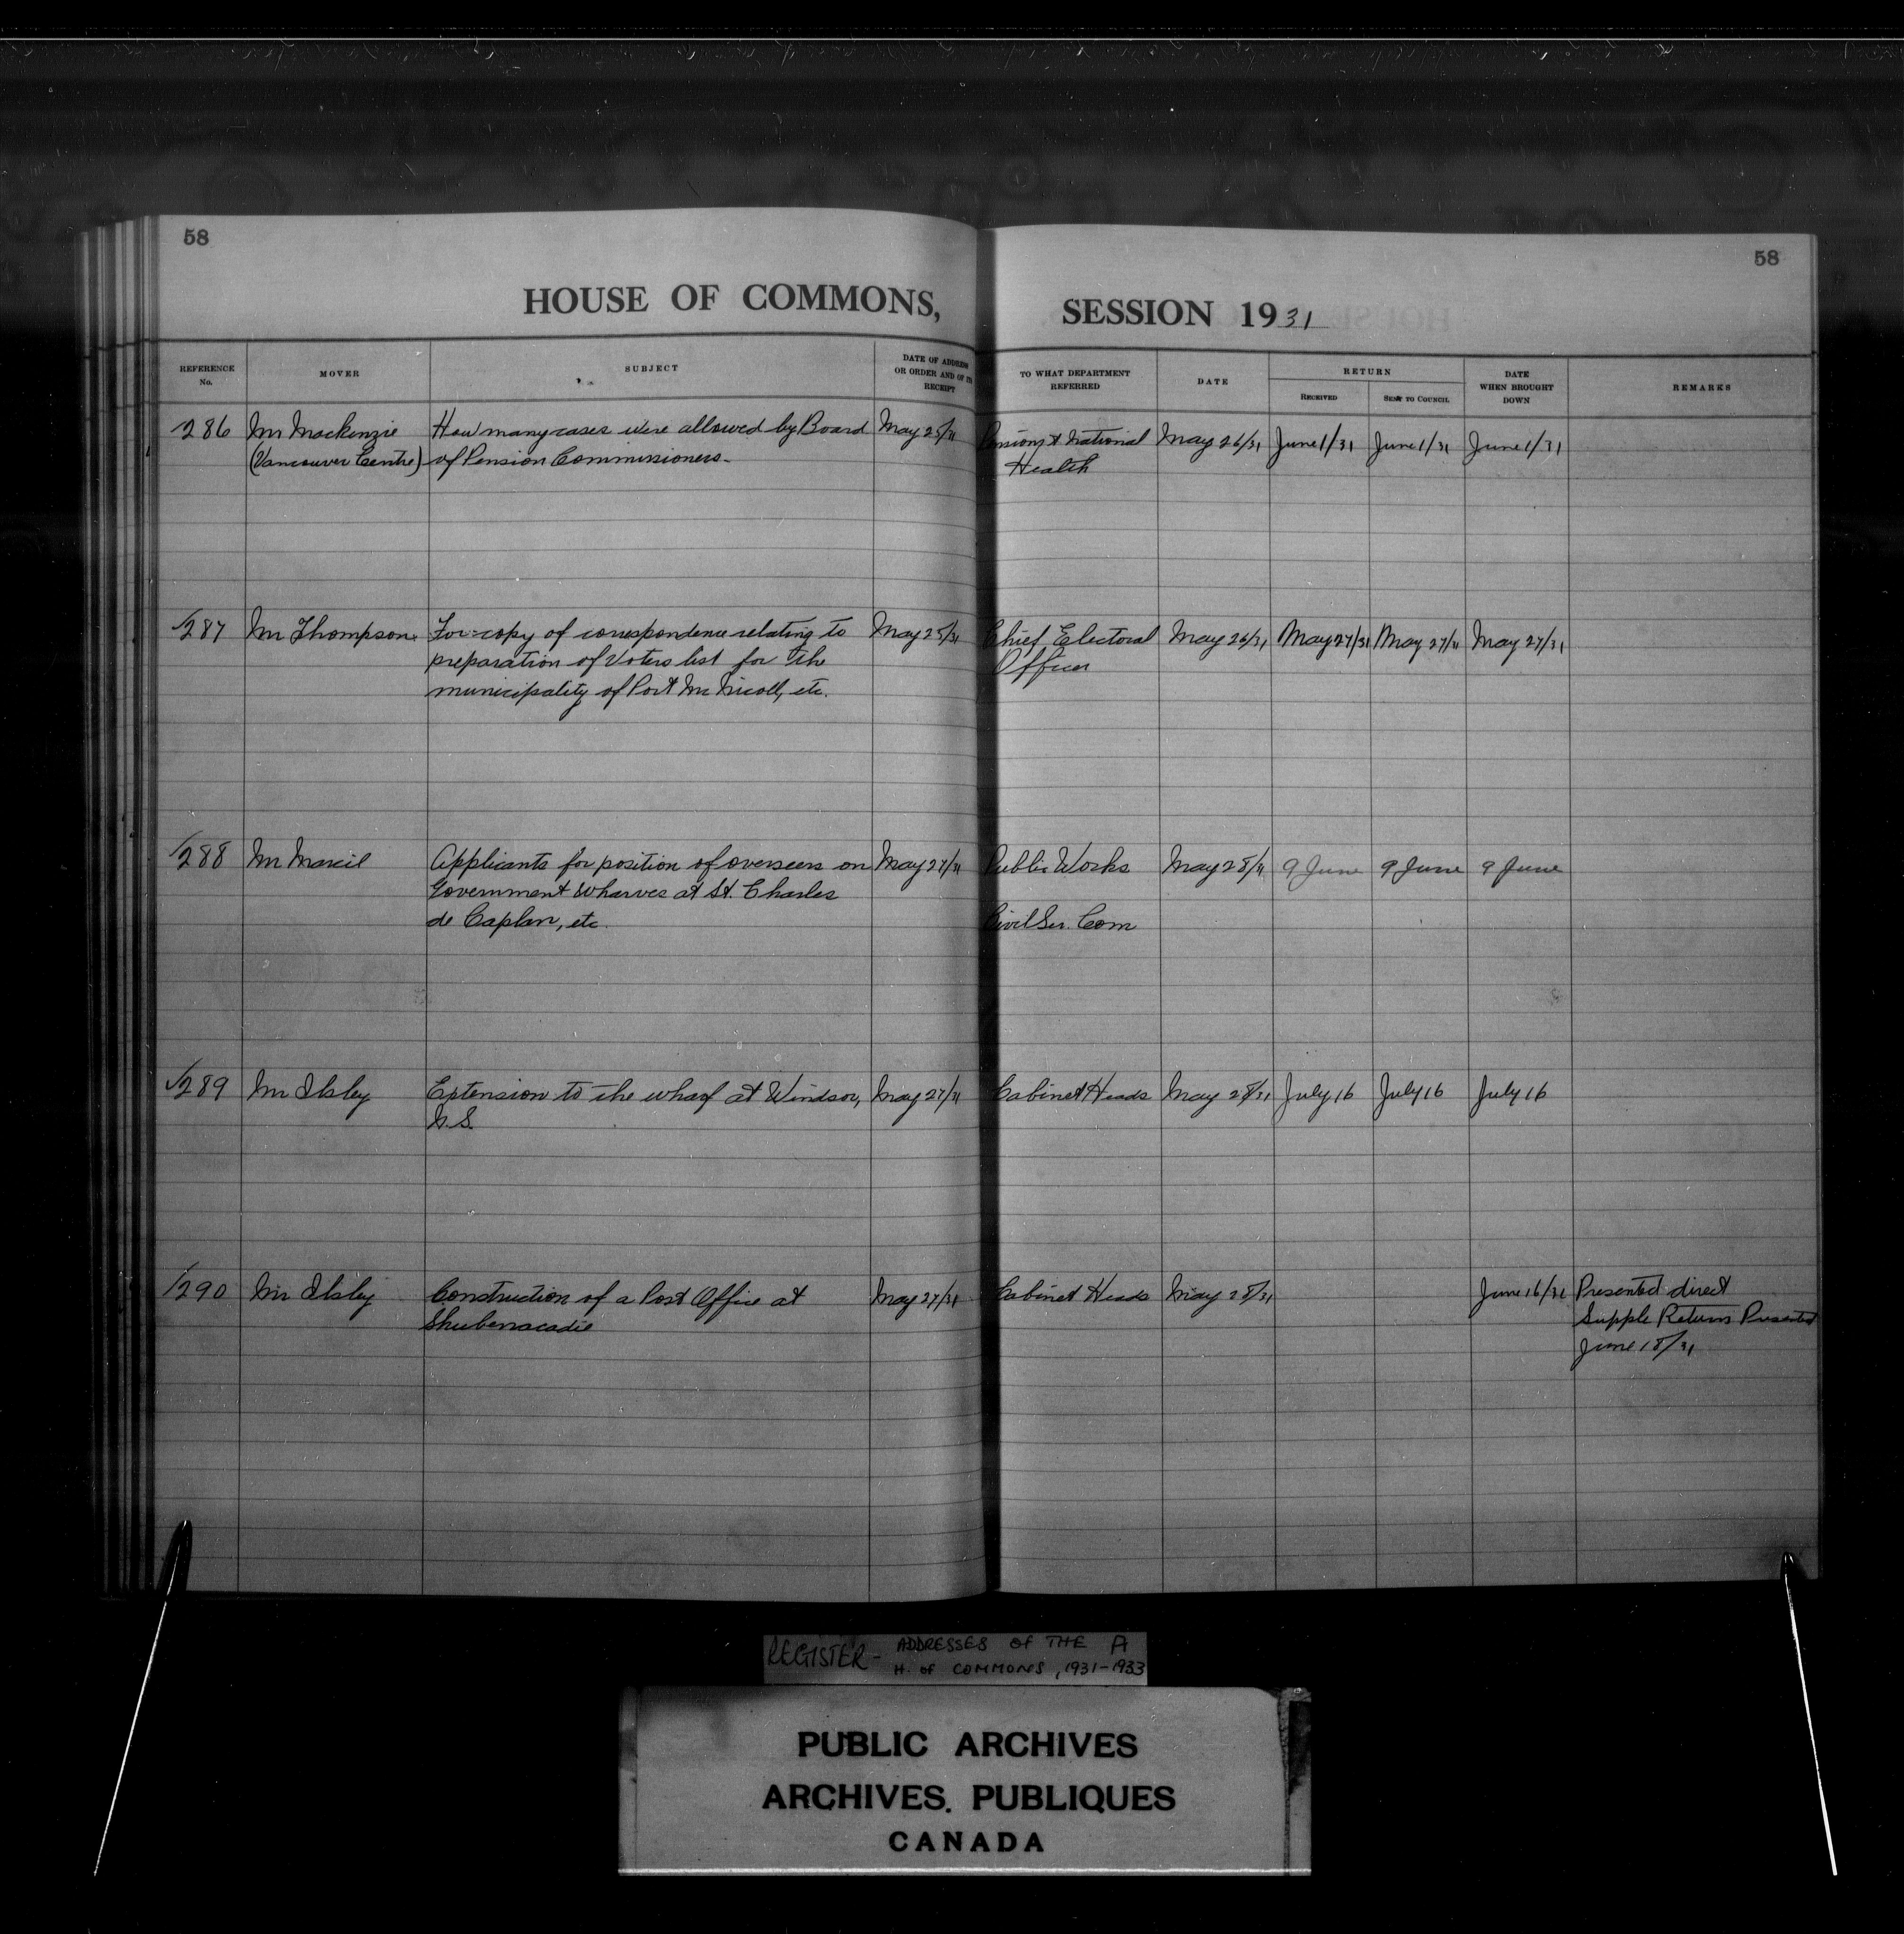 58
58
HOUSE OF COMMONS, SESSION 1931
REFERENCE No. MOVER SUBJECT DATE OF ADDRESS OR ORDER AND OF ITS RECEIPT TO WHAT DEPARTMENT REFERRED DATE RETURN RECEIVED SENT TO COUNCIL DATE WHEN BROUGHT DOWN REMARKS
286 Mr Mackenzie How many cases were allowed by Board May 25/31 Pensions & National May 26/31 June 1/31 June 1/31 June 1/31
(Vancouver Centre) of Pension Commissioners. Health
287 Mr Thompson For copy of correspondence relating to May 25/31 Chief Electoral May 26/31 May 27/31 May 27/31 May 27/31
preparation of Voters list for the Officer
municipality of Port Mc Nicoll, etc.
288 Mr Marcil Applicants for position of overseers on May 27/31 Public Works May 28/31 9 June 9 June 9 June
Government Wharves at St. Charles
de Caplan, etc. Civil Ser. Com
289 Mr Ilsley Extension to the wharf at Windsor, May 27/31 Cabinet Heads May 28/31 July 16 July 16 July 16
N.S.
290 Mr Ilsley Construction of a Post Office at May 27/31 Cabinet Heads May 28/31 June 16/31 Presented direct
Shubenacadie Supple Return Presented
June 18/31
REGISTER - ADDRESSES OF THE A
H. OF COMMONS, 1931-1933
PUBLIC ARCHIVES
ARCHIVES. PUBLIQUES
CANADA